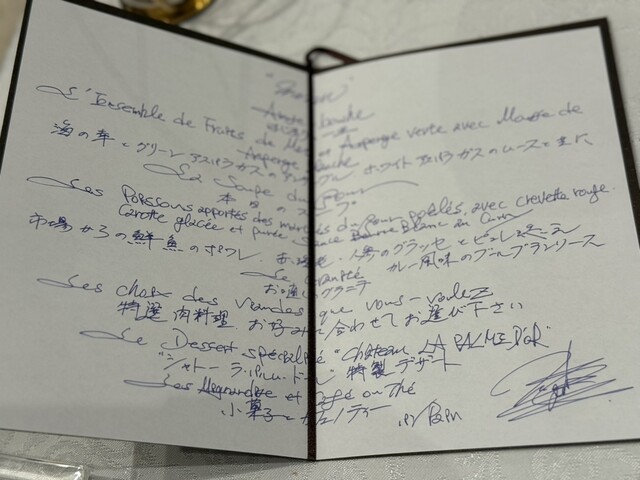 "Menu"
Amuse-bouche
L'Ensemble de Fruits de Mer et Asperge verte avec Mousse de
Asperge blanche
海の幸とグリーンアスパラガスのアンサンブル ホワイトアスパラガスのムースと共に
La Soupe du jour
本日のスープ
Les Poissons apportés des marchés du jour poêlés, avec crevette rouge.
Carotte glacée et purée Sauce Beurre Blanc au Curry
市場からの鮮魚のポワレ、赤海老、人参のグラッセとピュレ添え
カレー風味のブールブランソース
Le Granité
お口直しグラニテ
Les choix des viandes que vous-voulez
特選肉料理 お好みに合わせてお選び下さい
Le Dessert spécialité "Château LA PALME D'OR"
"シャトーラパルムドール" 特製デザート
Les Mignardise et Café ou Thé
小菓子とカフェ/ティー
Pain